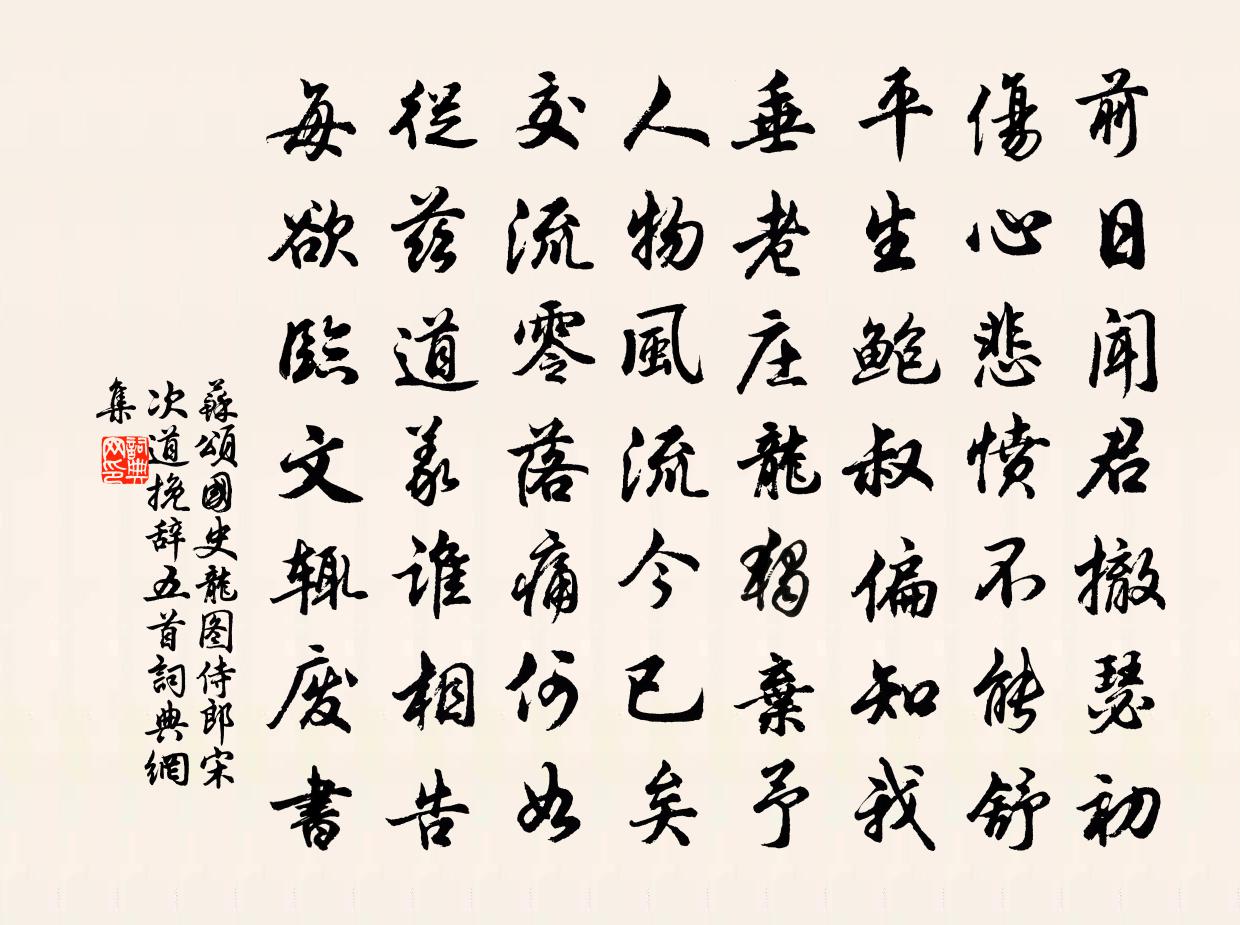 前日聞君撤瑟初
傷心悲憤不能舒
平生鮑叔偏知我
垂老庄龍獨棄予
人物風流今已矣
交流零落痛何如
從茲道義誰相告
每欲臨文輒废書
蘇頌國史龍图侍郎宋
次道挽辞五首詞典網
集
詞典
网印